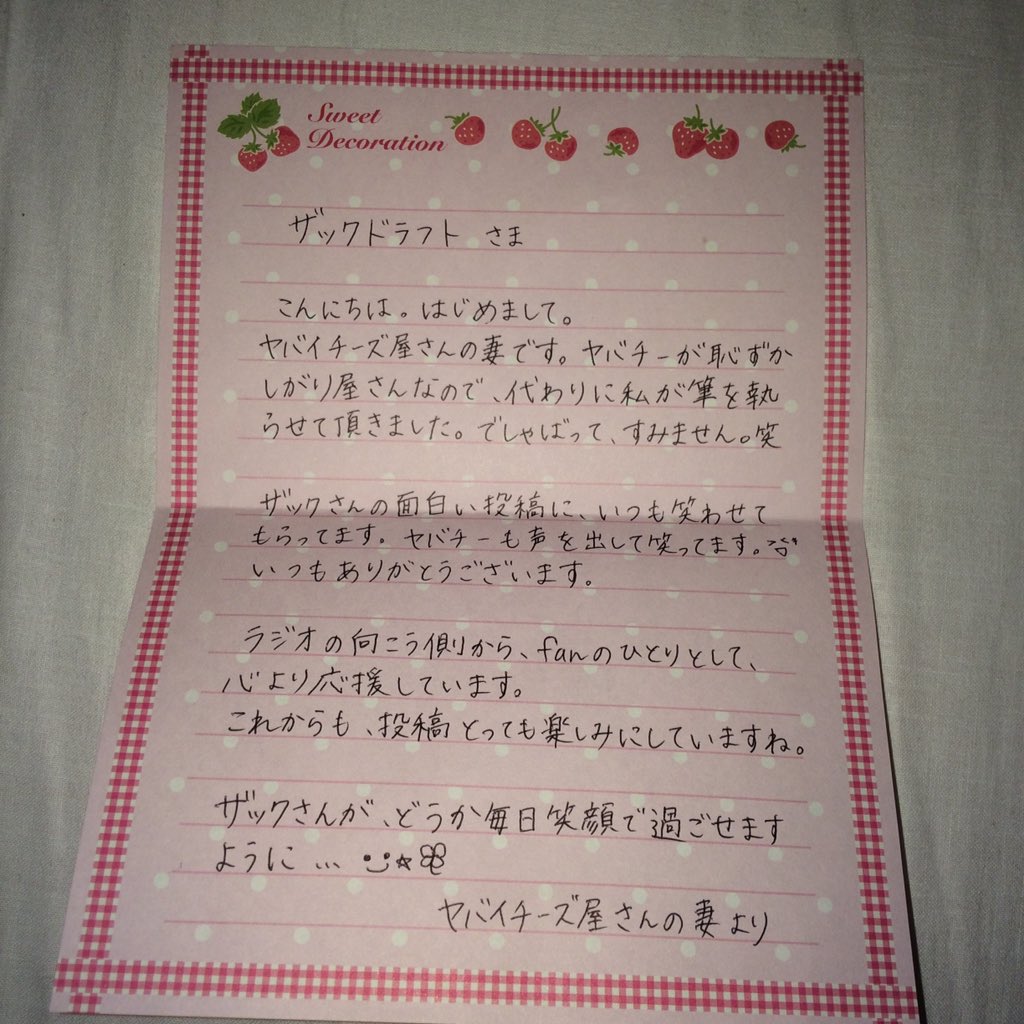 Sweet
Decoration
ザックドラフト さま
こんにちは。はじめまして。
ヤバイチーズ屋さんの妻です。ヤバチーが恥ずか
しがり屋さんなので、代わりに私が筆を執
らせて頂きました。でしゃばって、すみません。笑
ザックさんの面白い投稿に、いつも笑わせて
もらってます。ヤバチーも声を出して笑ってます。
いつもありがとうございます。
ラジオの向こう側から、fanのひとりとして、
心より応援しています。
これからも、投稿とっても楽しみにしていますね。
ザックさんが、どうか毎日笑顔で過ごせます
ように…
ヤバイチーズ屋さんの妻より